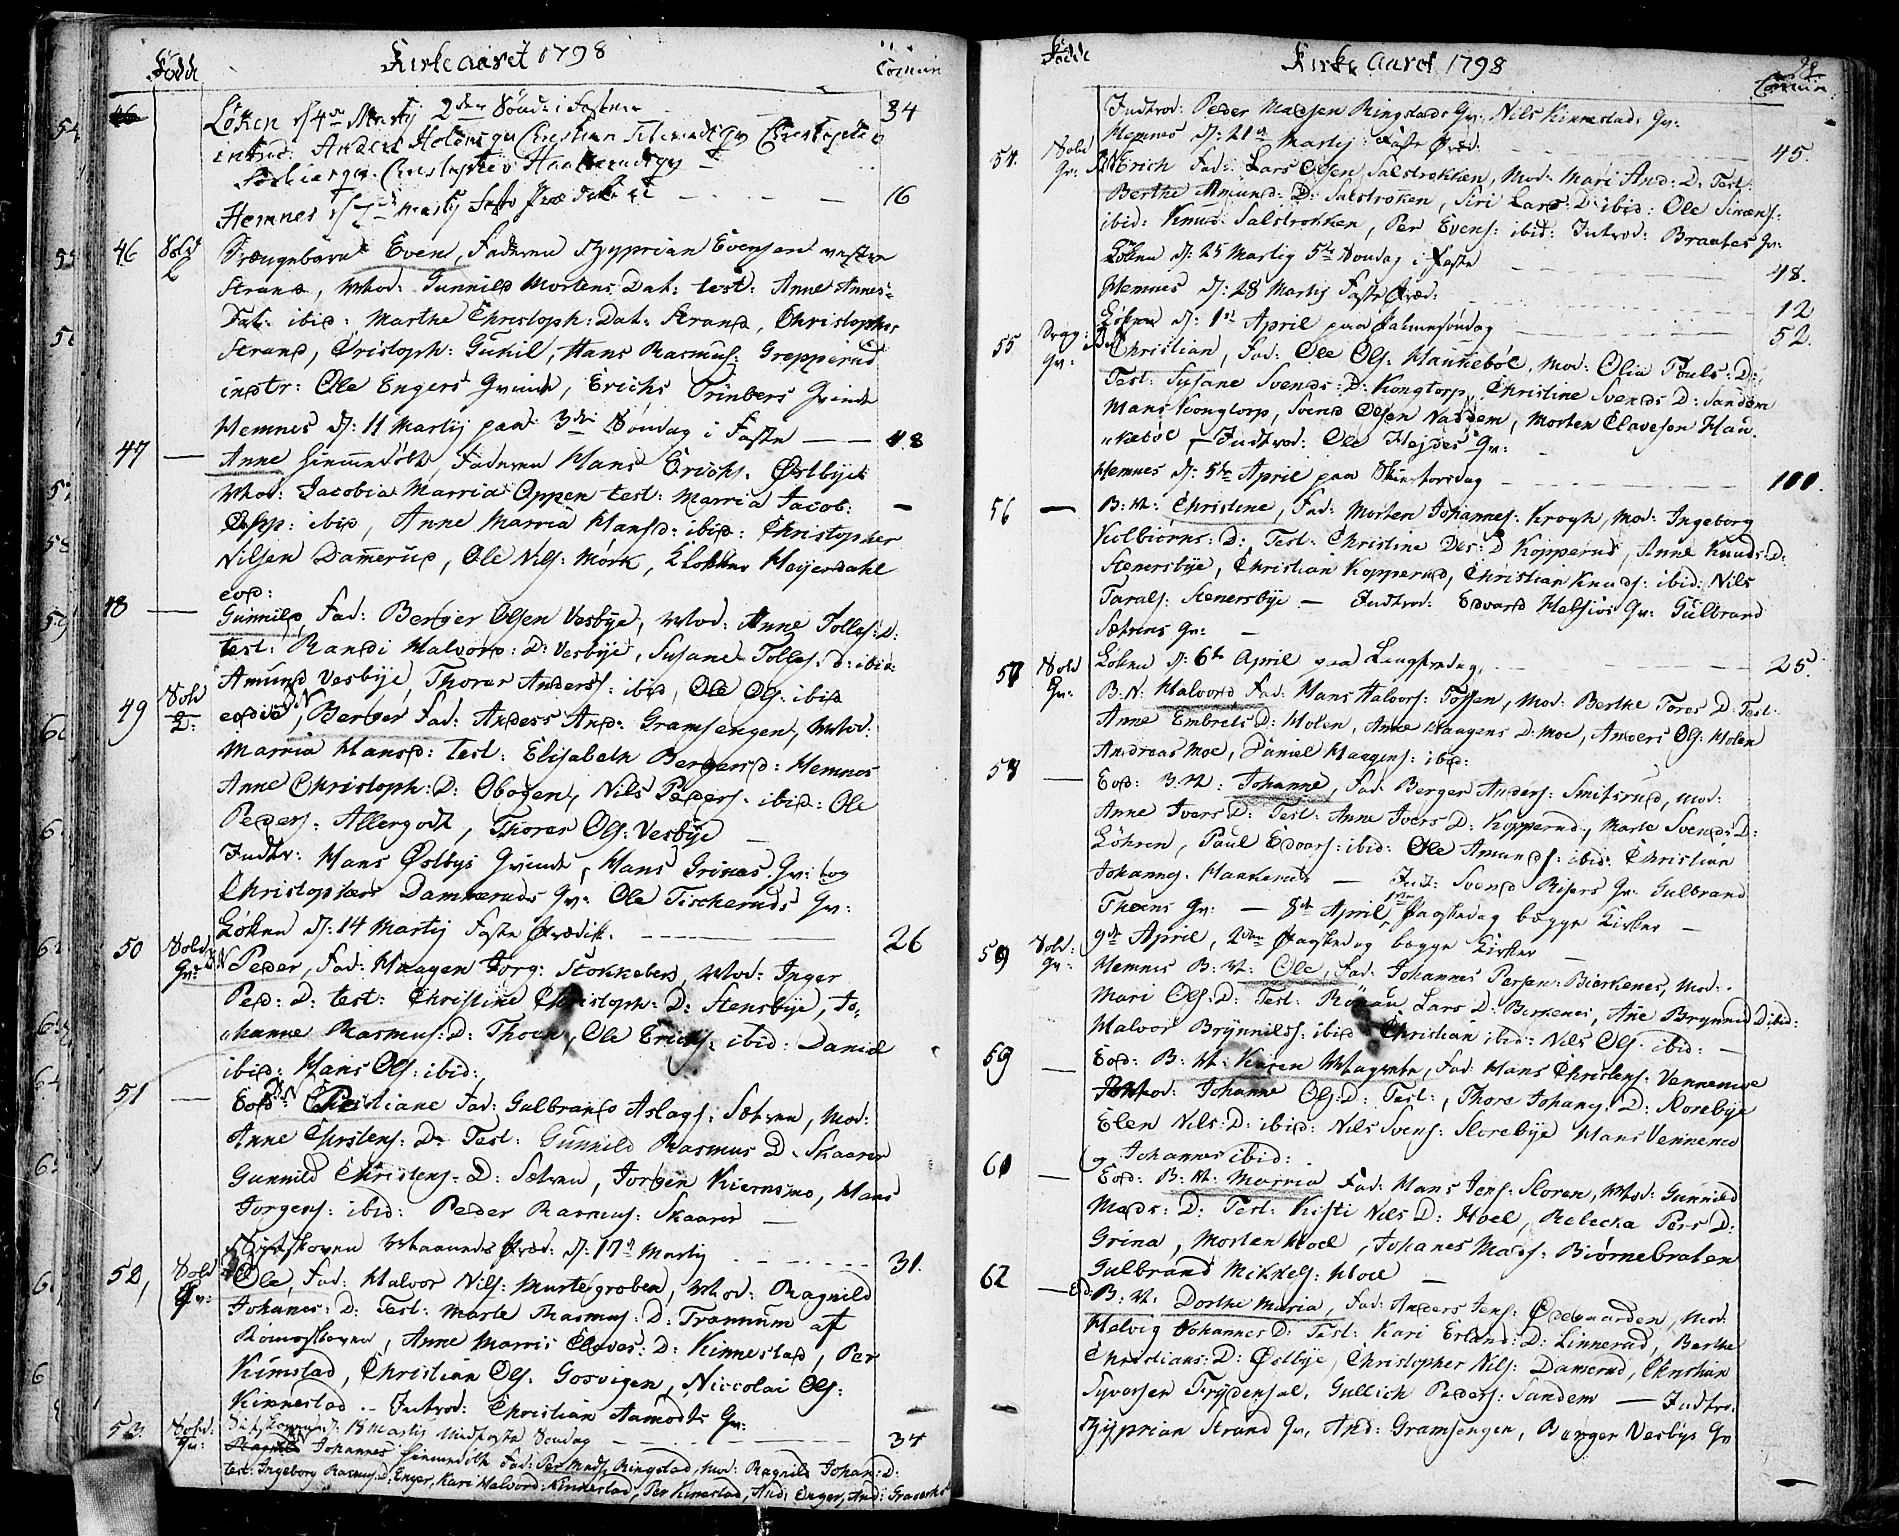 Fødde Kirke aaret 1798 Comun
Løken d 4de Martij 2den Sønd: i Faste 34
introd: Anders Holens qv Christian qv Christopher
qv: Christopher Haakerud qv
Hemnes d 7 Martij Faste Prædiken 16
46 Drængebarn Even, Faderen Zyprian Evensen vestre
Strand, Mod: Gunnild Mortens Dat: test: Anne Annes
Dat: ibid: Marthe Christoph: Dat: Strand, Christopher
Strand, Cristoph: Gukil, Hans Rasmus: Grepperud
instr: Ole Engers Qvinde, Erichs Trinbers Qvinde
Hemnes d: 11 Martij paa 3die Søndag i Faste 48
47 — Anne hiemmedøbt, Faderen Hans Erichs. Østbye
Mod: Jacobia Marria Oppen test: Marria Jacob:
Opp: ibid, Anne Marria Hansd: ibid: Christopher
Nilsen Damerud, Ole Nils: Mörk, Klokker Heyerdahl
48 — eod:
Gunnild, Fad: Berger Olsen Vesbye, Mod: Anne Tolles: D:
test: Randi Halvord: D: Vesbye, Susane Tolles: D: ibid:
Amund Vesbye, Thorer Anders: ibid, Ole Ols: ibid
49 eodie, Berger Fad: Anders And: Gramsengen, Mod:
Marria Hansd: test: Elisabeth Bergersd: Hemnes
Anne Christoph: D: Obogen, Nils Peders. ibid: Ole
Peders: Allergodt, Thorer Ols: Vesbye —
Indtr: Hans Østbys Qvinde, Hans Grinas Qv: og
Christophers Dameruds Qv: Ole Tischeruds Qv:
Løken d: 14 Martij Faste Prædik. 26
50 Vold: Qv: Peder, Fad: Haagen Jorg: Stokkebek, Mod: Inger
Ped: D: test: Christine Christoph: D: Stensbye, Jo-
hanne Rasmus: D: Thoen, Ole Erichs: ibid: Daniel
ibid: Hans Ols: ibid:
51 — Eod: Christiane Fad: Gulbrand Aslags: Sætren, Mod:
Anne Christens: D: Test: Gunnild Rasmus D. Skaarer
Gunnild Christens: D: Sætren, Jorgen Kiernsmo, Hans
Jorgens: ibid: Peder Rasmus: Skaarer —
Præd: d: 17de Martij 31.
52, Vold Qv: Ole, Fad: Halvor Nils: Murtegroben, Mod: Ragnild
Johanes: D: Test: Marte Rasmus: D: Trannum af
Anne Marris Claves: D: Kinnestad, Per
Kinnstad, Christian Ols: Gosvigen, Niccolai Ols:
Kinnestad — Introd: Christian Aamodts Qv:
53 Vold: Qv: d: 18 Martij Midfaste Søndag 34
Johannes hiemmedøbt Fad: Per Mads, Ringstad, Mod: Ragnild Johan: D:
test: Ingeborg Rasmus: D: Enger, Kari Halvord: Kinnestad, Per Kinestad, And: Enger, And:
Fødde Kirke Aaret 1798 Comun:
Indtrod: Peder Madsen Ringstads Qv: Nils Kinnestads Qv:
Hemnes d: 21de Martij: Faste Præd: 45.
54. Vold Qv: Erich Fad: Lars Olsen Salstrokken, Mod: Mari And: D: Test:
Berthe Amund: D: Salstroken, Siri Lars: D: ibid: Ole Simens:
ibid: Knud Salstrokken, Per Evens: ibid: Introd: Braates Qv:
Løken d: 25 Martij 5te Søndag i Faste 48.
Hemnes d: 28 Martij Faste Præd: 12
Løken d: 1ste April paa Palmesøndag 52.
55 Christian, Fad: Ole Ols: Hannkebøl, Mod: Olia Pouls: D:
Test: Susane Svends: D: Kongtorp, Christine Svends D: Sandem
Hans Kongtorp, Svend Olsen Nasdem, Morten Clavesen Han-
kebøl — Indtrod: Ole Hejdes Qv:
Hemnes d: 5te April paa Skiertorsdag 100.
56 — B: N: Christine, Fad: Morten Johannes: Krogh, Mod: Ingeborg
Kolbiørns: D: Test: Christine Des: D Kopperud, Anne Knuds: D:
Stenersbye, Christian Kopperud, Christian Knuds: ibid: Nils
Tarals: Stenersbye — Indtrod: Edvard Helsiös Qv: Gulbrand
Sætrens Qv: —
57 Vold Qv: Løken d: 6te April paa Langfredag, 25.
B: N: Halvord Fad: Hans Halvors: Tossen, Mod: Berthe Tores D: Test:
Anne Embrets D: Holen, Anne Haagens D: Moe, Anders Ols: Holen
Andreas Moe, Daniel Haagens: ibid:
58 — Eod: B: N: Johanne, Fad: Berger Anders: Smitsrud, Mod:
Anne Ivers D: Test: Anne Ivers D: Kopperud, Marte Svends: D:
Löhren, Paul Edvars: ibid: Ole Amunds: ibid: Christian
Johannes: Haakerud — Indt: Svend Risers Qv: Gulbrand
Thoens Qv: — 8de April, 1ste Paaskedag begge Kirker —
59 Vold: Qv: 9de April, 2den Paaskedag begge Kirker —
Hemnes B: N: Ole, Fad: Johannes Persen: Bierkenes, Mod:
Mari Ols: D: Test: Lars D: Berkenes, Ane Brynild D ibid:
Halvor Brynnilds: ibid Christian ibid: Nils Ols: ibid: —
59 — Eod: B: N: Karen Magrete, Fad: Hans Christens: Vennemoe
Mod: Johanne Ols: D: Test:, Thore Johans: D: Slorebye
Elen Nils: D: ibid: Nils Svens: Slorebye Hans Vennemo
og Johannes ibid:
61 — Eod: B: N: Marria Fad: Hans Jens: Sloren, Mod: Gunnild
Mads: D: Test: Kisti Nils D: Hoel, Rebecka Pers D:
Grina, Morten Hoel, Johanes Mads: Biørnebraten
Gulbrand Mikkels: Hoel —
62 — Ed: B: N: Dorthe Maria, Fad: Anders Jens: Ødegaarden, Mod:
Helvig Johannes D: Test: Kari Erland: D: Linnerud, Berthe
Christians: D: Østbye, Christopher Nils: Damerud, Christian
Syversen Frydensal, Gullich Peders: Sandem — Indtro:
Zyprian Strand Qv, And: Gramsengen, Berger Vesbys Qv